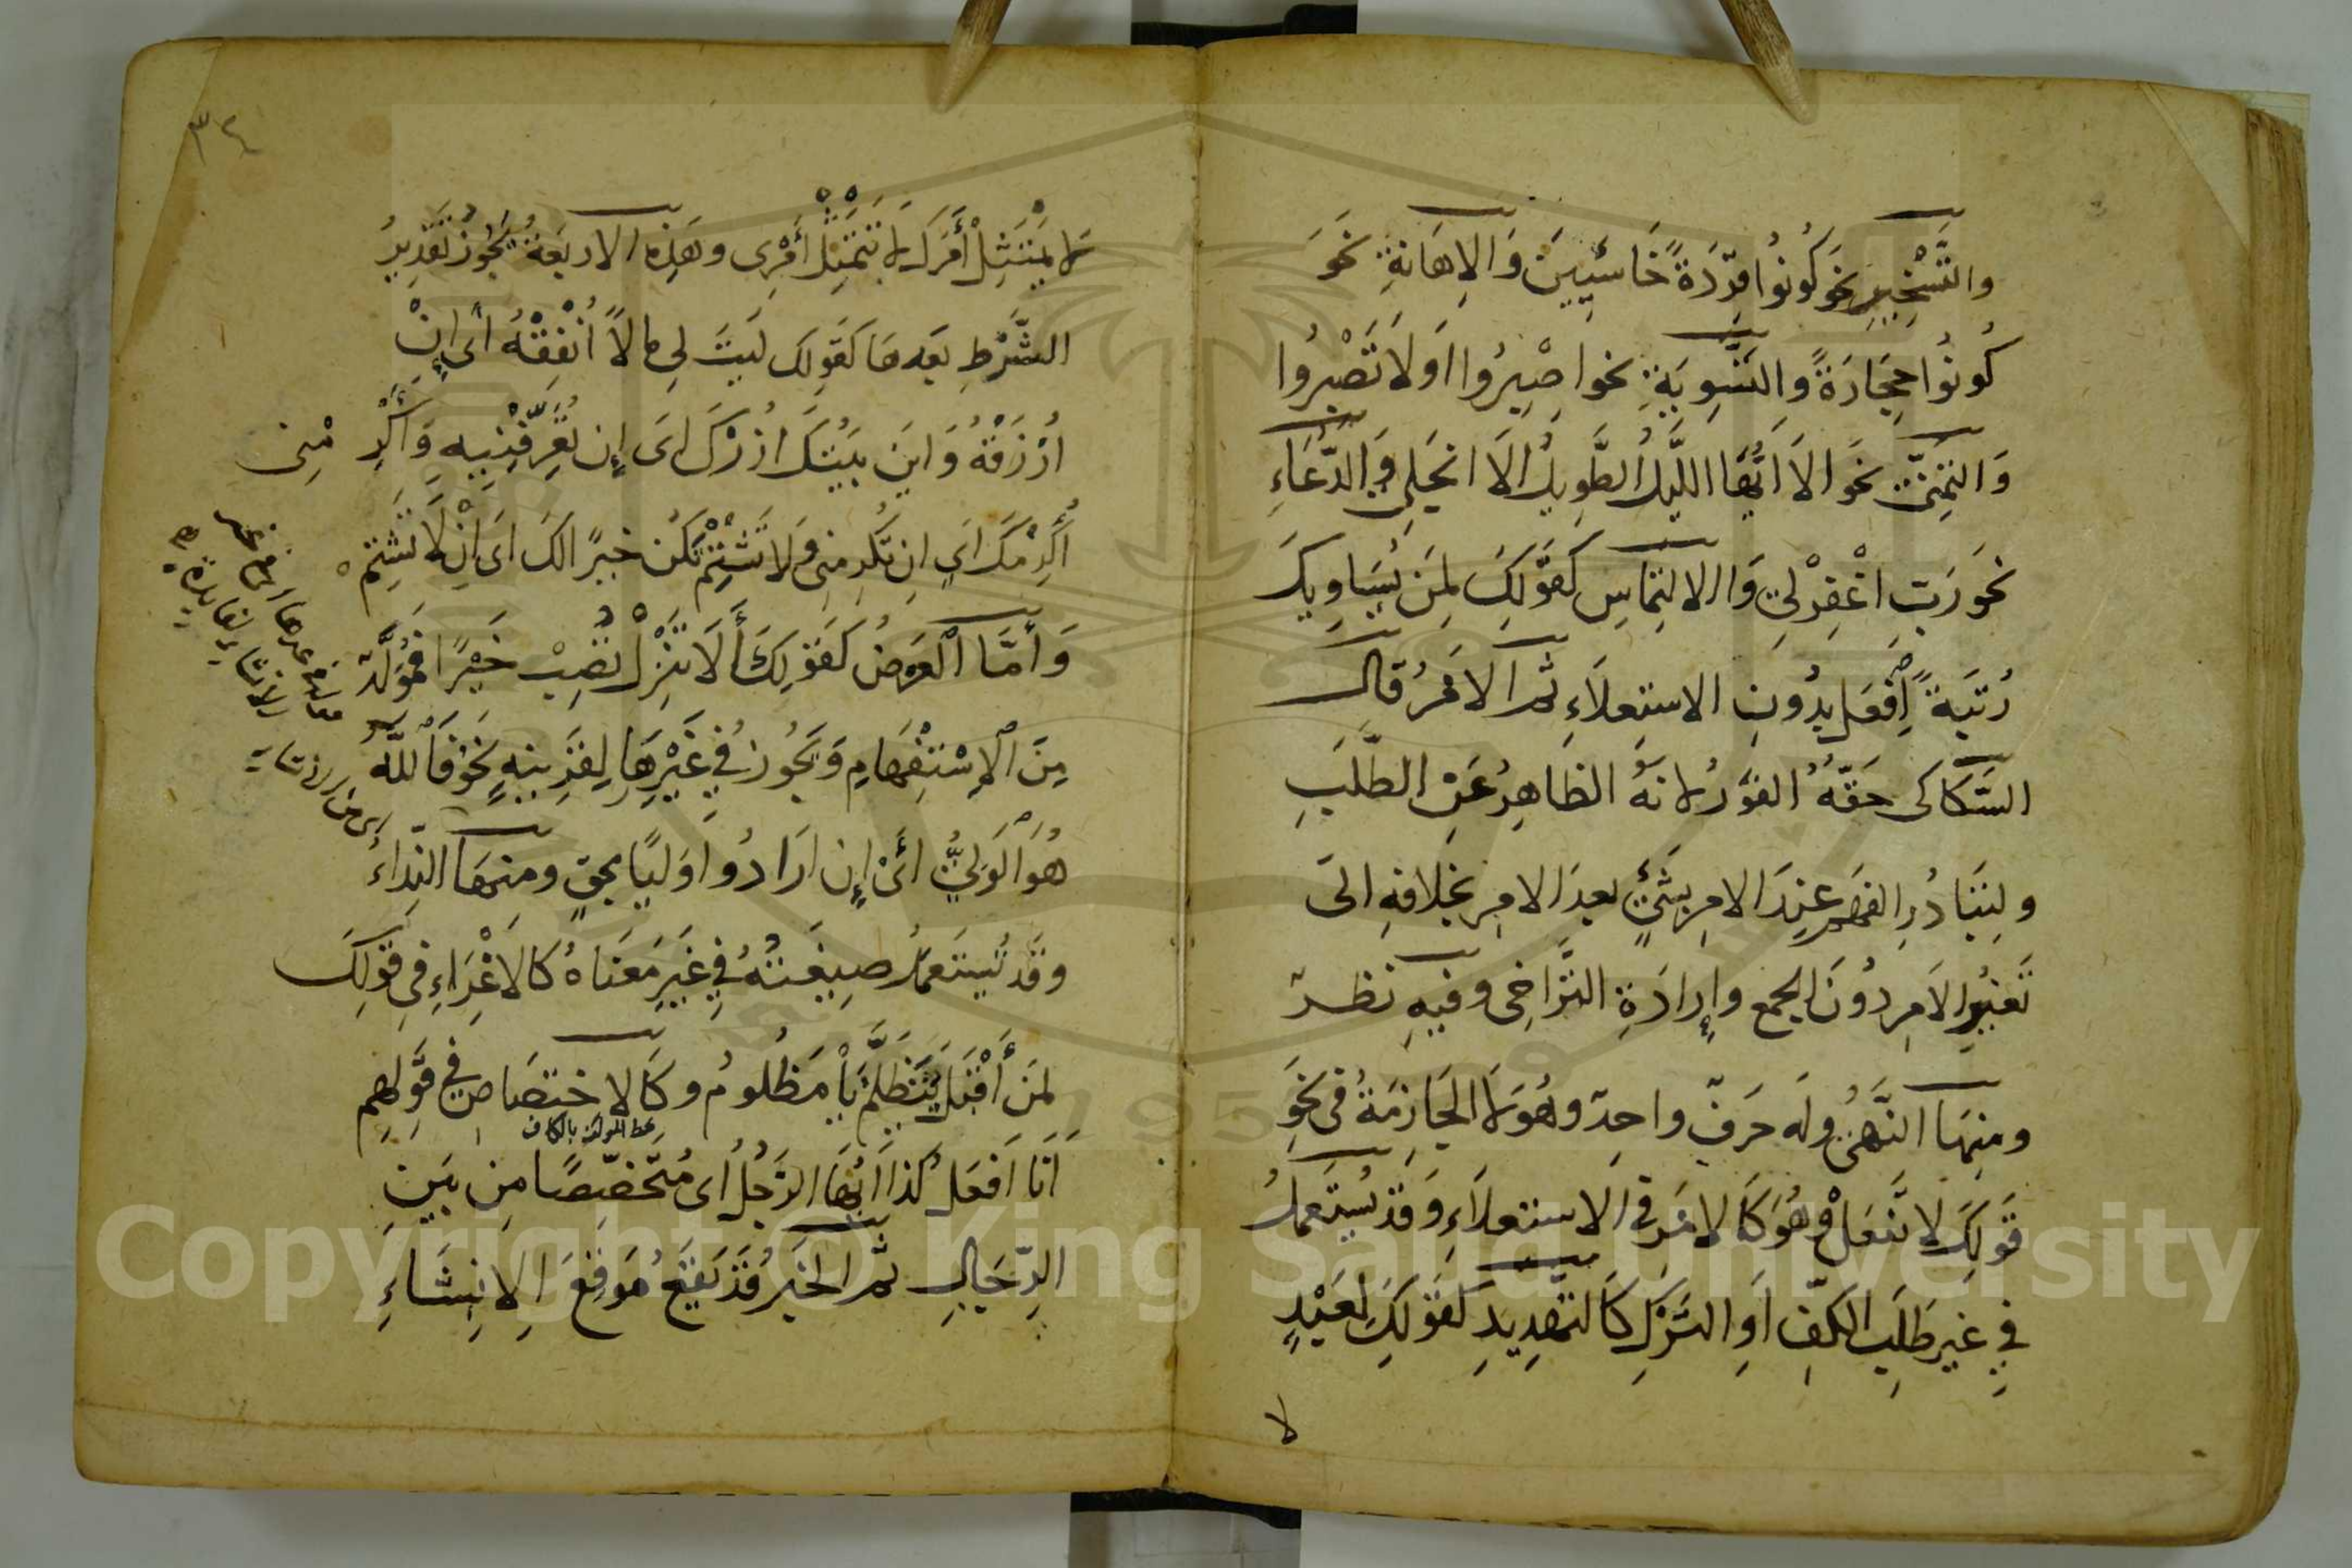 والتَّسْخِيرِ نحو كُونُوا قِرَدَةً خَاسِئِينَ وَالإِهَانَةِ نَحْوَ
كُونُوا حِجَارَةً وَالتَّسْوِيَةِ نحو اصْبِرُوا أَوْ لَا تَصْبِرُوا
وَالتَّمَنِّي نَحْوَ أَلَا أَيُّهَا اللَّيْلُ الطَّوِيلُ أَلَا انْجَلِي وَالدُّعَاءِ
نَحْوَ رَبِّ اغْفِرْ لِي وَالالْتِمَاسِ كَقَوْلِكَ لِمَنْ يُسَاوِيكَ
رُتْبَةً افْعَلْ بِدُونِ الاستِعلَاءِ ثم الأَمْرُ قال
السَّكَّاكي حَقُّهُ الفَوْرُ لأنَّهُ الظَّاهِرُ عَنِ الطَّلَبِ
ولِتَبَادُرِ الفَهْمِ عِنْدَ الأمرِ بِشَيْءٍ بعدَ الأمرِ بخلافهِ الى
تَغْيِيرِ الأَمرِ دُونَ الجمعِ وإِرَادَةِ التَّرَاخِي وفيهِ نظر
ومنها النَّهْيُ وله حَرفٌ واحد وهُوَ لَا الجَازِمَةُ في نَحْوِ
قَوْلِكَ لا تَفعَلْ وهُوَ كَالأمْرِ في الاستعلَاءِ وَقَدْ يُستَعملُ
في غيرِ طَلَبِ الكَفِّ أَوِ التَّرْكِ كَالتَّهْدِيدِ كَقَوْلِكَ لِعَبْدٍ
لا
٣٤
لا يَمْتَثِلُ أَمْرَكَ لا تَمْتَثِلْ أَمْرِي وهَذِه الاربَعَةُ يَجُوزُ تَقْدِيرُ
الشَّرْطِ بَعدهَا كَقَولِك لَيتَ لِي مالًا أُنْفِقْهُ أي إِنْ
أُرْزَقْهُ وَاينَ بَيْتُكَ أَزُرْكَ أي إن تُعَرِّفْنِيهِ وَأَكْرِمْنِي
أُكْرِمْكَ أي ان تكرمني وَلا تَشْتِمْ يَكُنْ خيرًا لك أي إِنْ لَا تَشْتِمْ
وَأَمَّا الْعَرْضُ كَقَوْلِكَ أَلَا تَنْزِلْ تُصِبْ خَيْرًا فَمُوَلَّدٌ
مِنَ الْإِسْتِفْهَامِ وَيَجُوزُ فِي غَيْرِهَا لِقَرِينَةٍ نَحْوُ فَاللَّهُ
هُوَ الْوَلِيُّ أَيْ إِن ارَادُوا وَلِيًّا بحقٍّ ومنهَا النِّدَاءُ
وقَدْ تُستَعمَلُ صِيغَتُهُ فِي غَيرِ مَعنَاهُ كَالإغْرَاءِ فِي قَوْلِكَ
لِمَنْ أَقْبَلَ يَتَظَلَّمُ يَا مَظْلُومُ وكَالاختِصَاصِ فِي قَوْلِهِم
أَنَا أَفعَلُ كَذا أَيُّهَا الرَّجُلُ أي مُتَخَصِّصًا مِن بَيْنِ
الرِّجَالِ ثم الخَبَرُ قَدْ يَقَعُ مَوْقِعَ الإِنشَاءِ
Copyright © King Saud University
1957